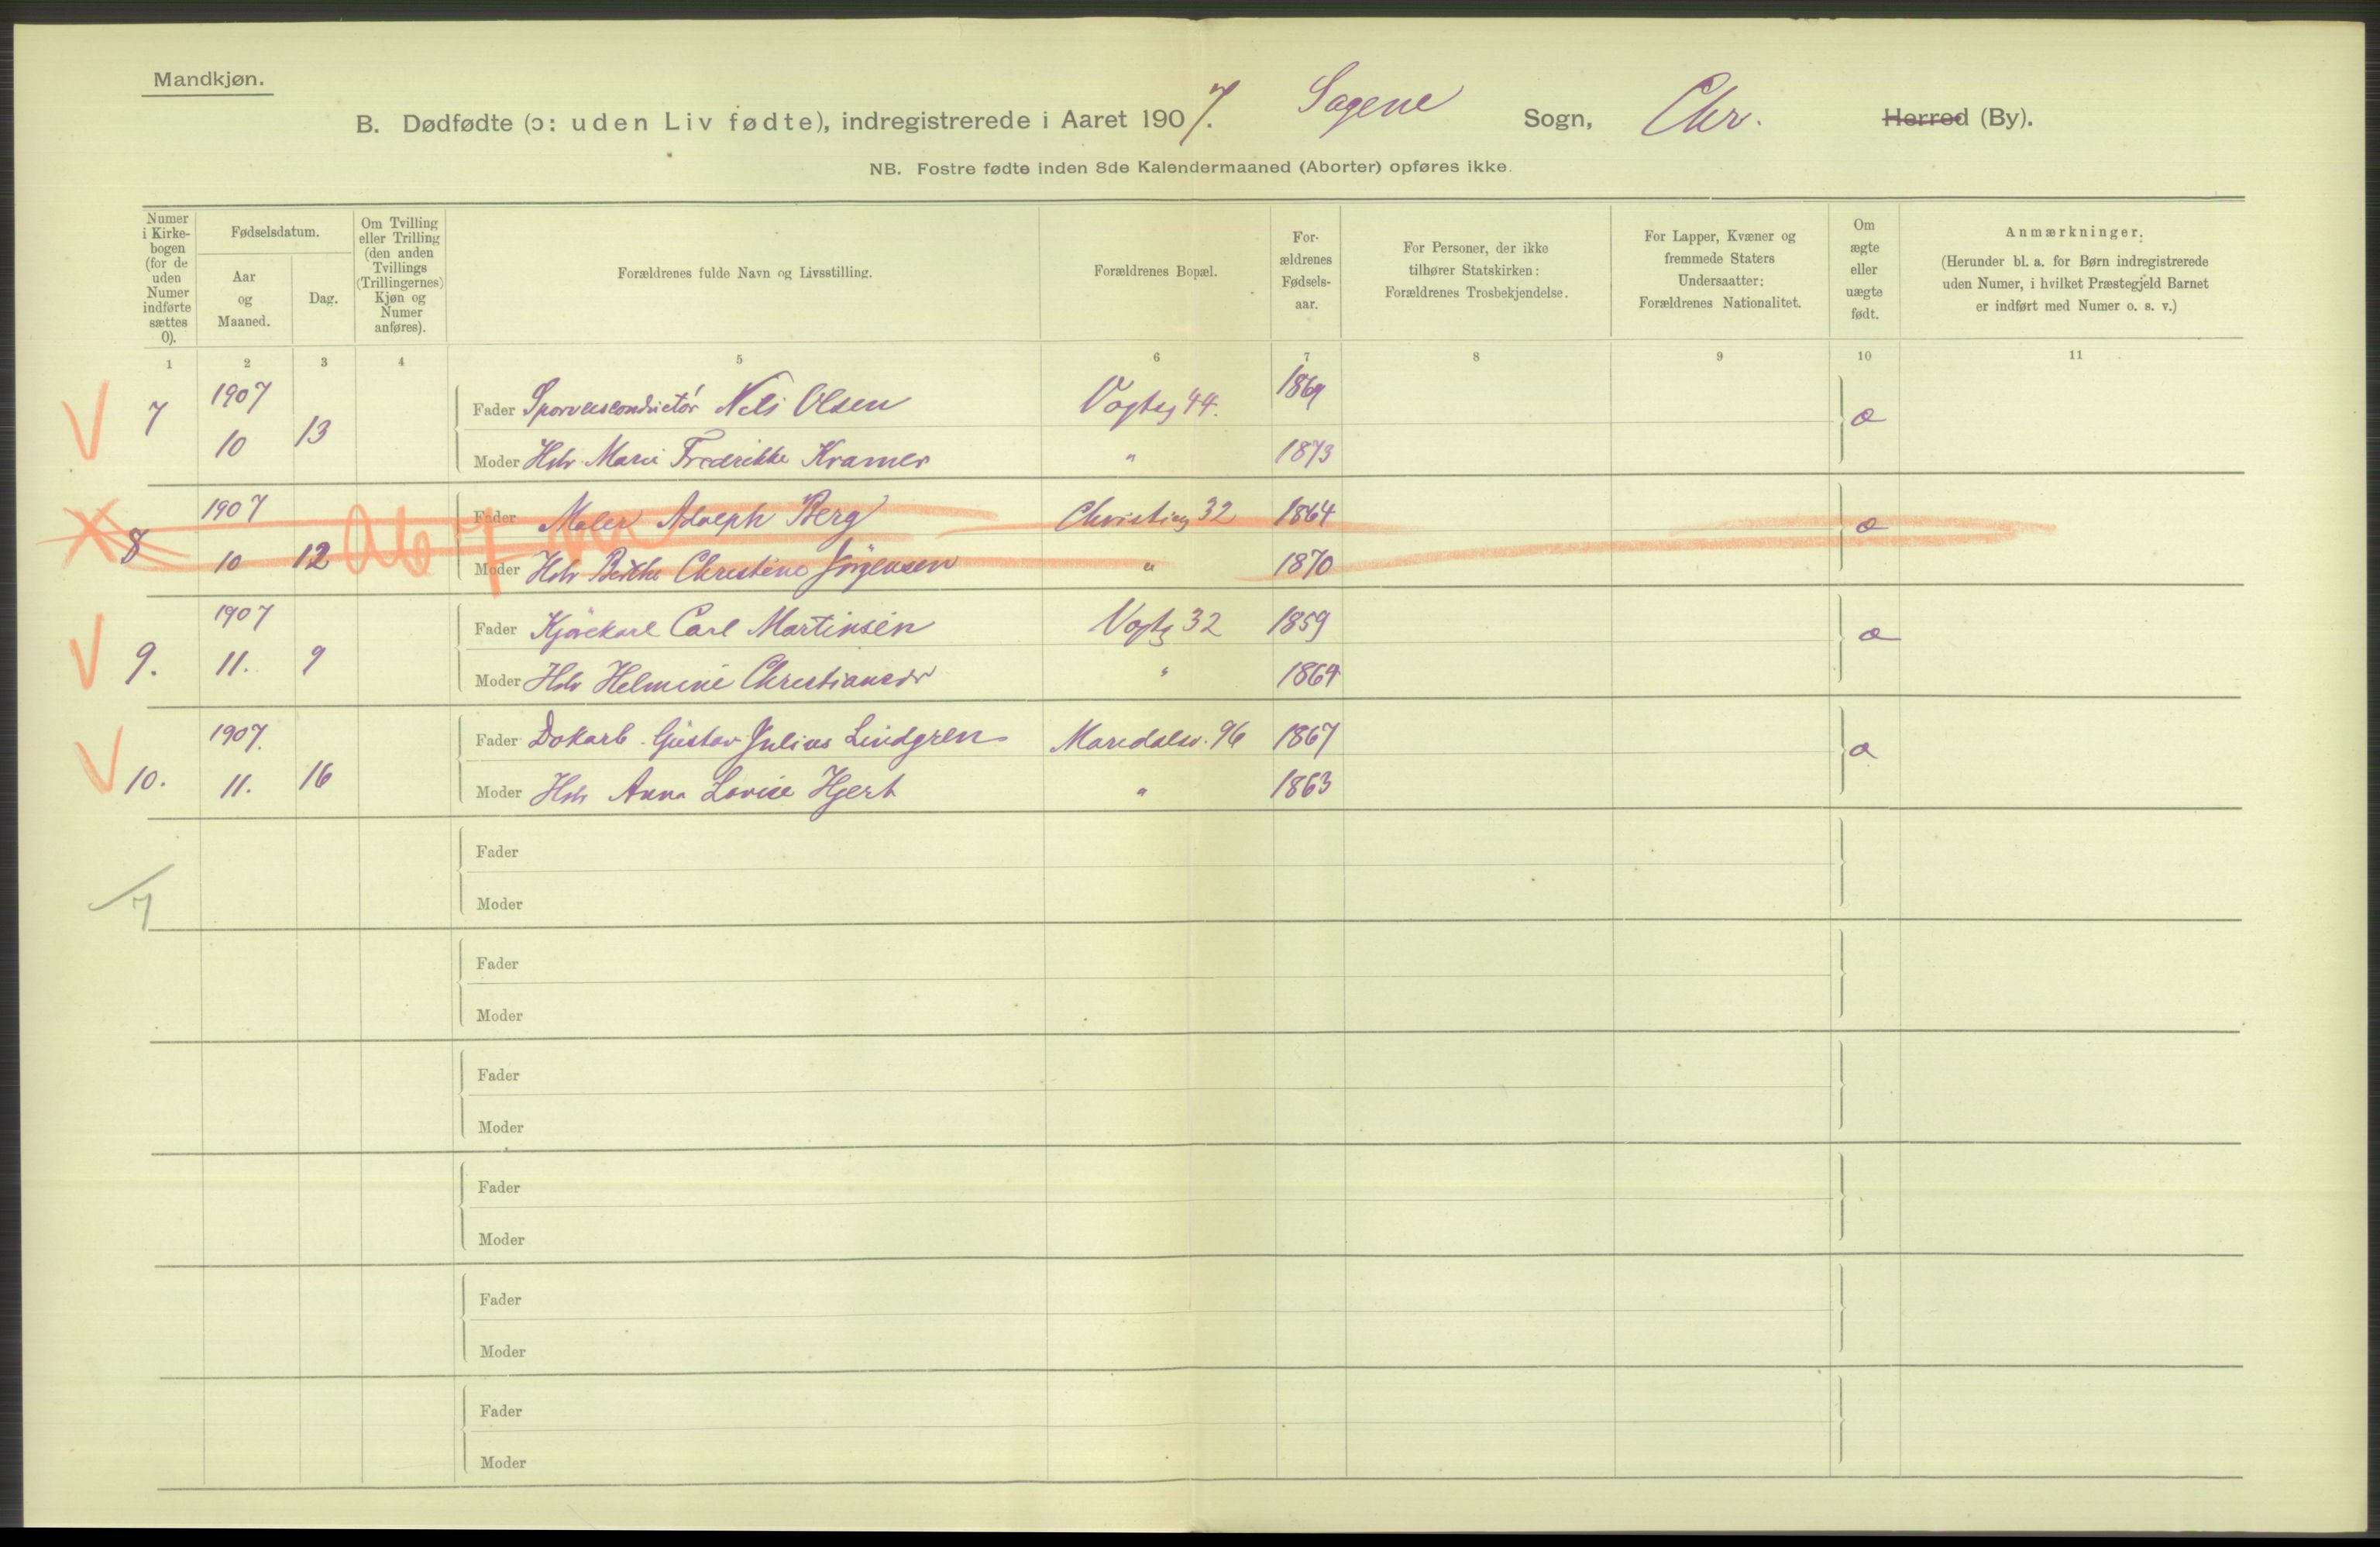 Mandkjøn.
B. Dødfødte (ɔ: uden Liv fødte), indregistrerede i Aaret 1907. Sagene Sogn, Chr. Herred (By).
NB. Fostre fødte inden 8de Kalendermaaned (Aborter) opføres ikke.
Numer i Kirke-bogen (for de uden Numer indførte sættes 0).
Fødselsdatum.
Aar og Maaned.
Dag.
Om Tvilling eller Trilling (den anden Tvillings (Trillingernes) Kjøn og Numer anføres).
Forældrenes fulde Navn og Livsstilling.
Forældrenes Bopæl.
For-ældrenes Fødsels-aar.
For Personer, der ikke tilhører Statskirken: Forældrenes Trosbekjendelse.
For Lapper, Kvæner og fremmede Staters Undersaatter: Forældrenes Nationalitet.
Om ægte eller uægte født.
Anmærkninger.
(Herunder bl. a. for Børn indregistrerede uden Numer, i hvilket Præstegjeld Barnet er indført med Numer o. s. v.)
1 2 3 4 5 6 7 8 9 10 11
7 1907 10 13 Fader Sporveisconductør Nils Olsen Vogtsg 44. 1869
Moder Hstr Marie Fredrikke Kramer " 1873
8 1907 10 12 Fader Maler Adolph Berg Christiesg 32 1864
Moder Hstr Berthe Christine Jörgensen " 1870
9. 1907 11. 9 Fader Kjørekarl Carl Martinsen Vogtsg 32 1859
Moder Hstr Helmine Christiansen " 1864
10. 1907. 11. 16 Fader Dokarb. Gustav Julius Lindgren Maridalsv. 96 1867
Moder Hstr Anna Lovise Hjert " 1863
Fader
Moder
7
Fader
Moder
Fader
Moder
Fader
Moder
Fader
Moder
Fader
Moder